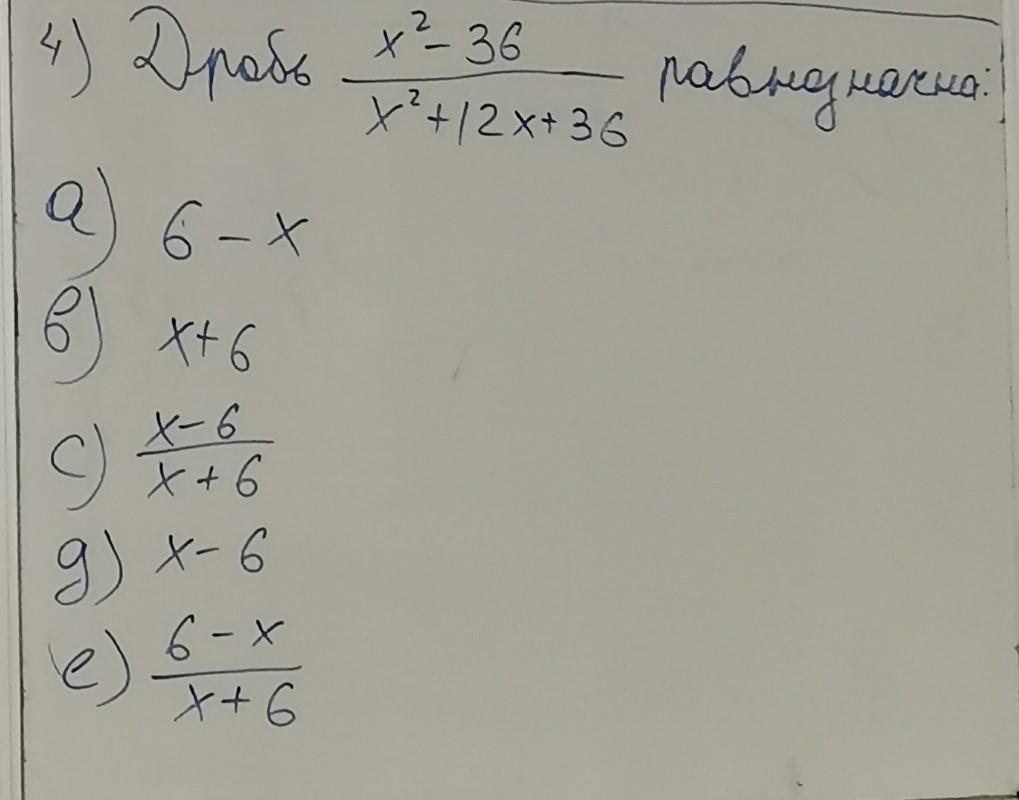 4) Дробь \frac{x^2-36}{x^2+12x+36} равнозначна:
а) 6-x
в) x+6
с) \frac{x-6}{x+6}
д) x-6
е) \frac{6-x}{x+6}